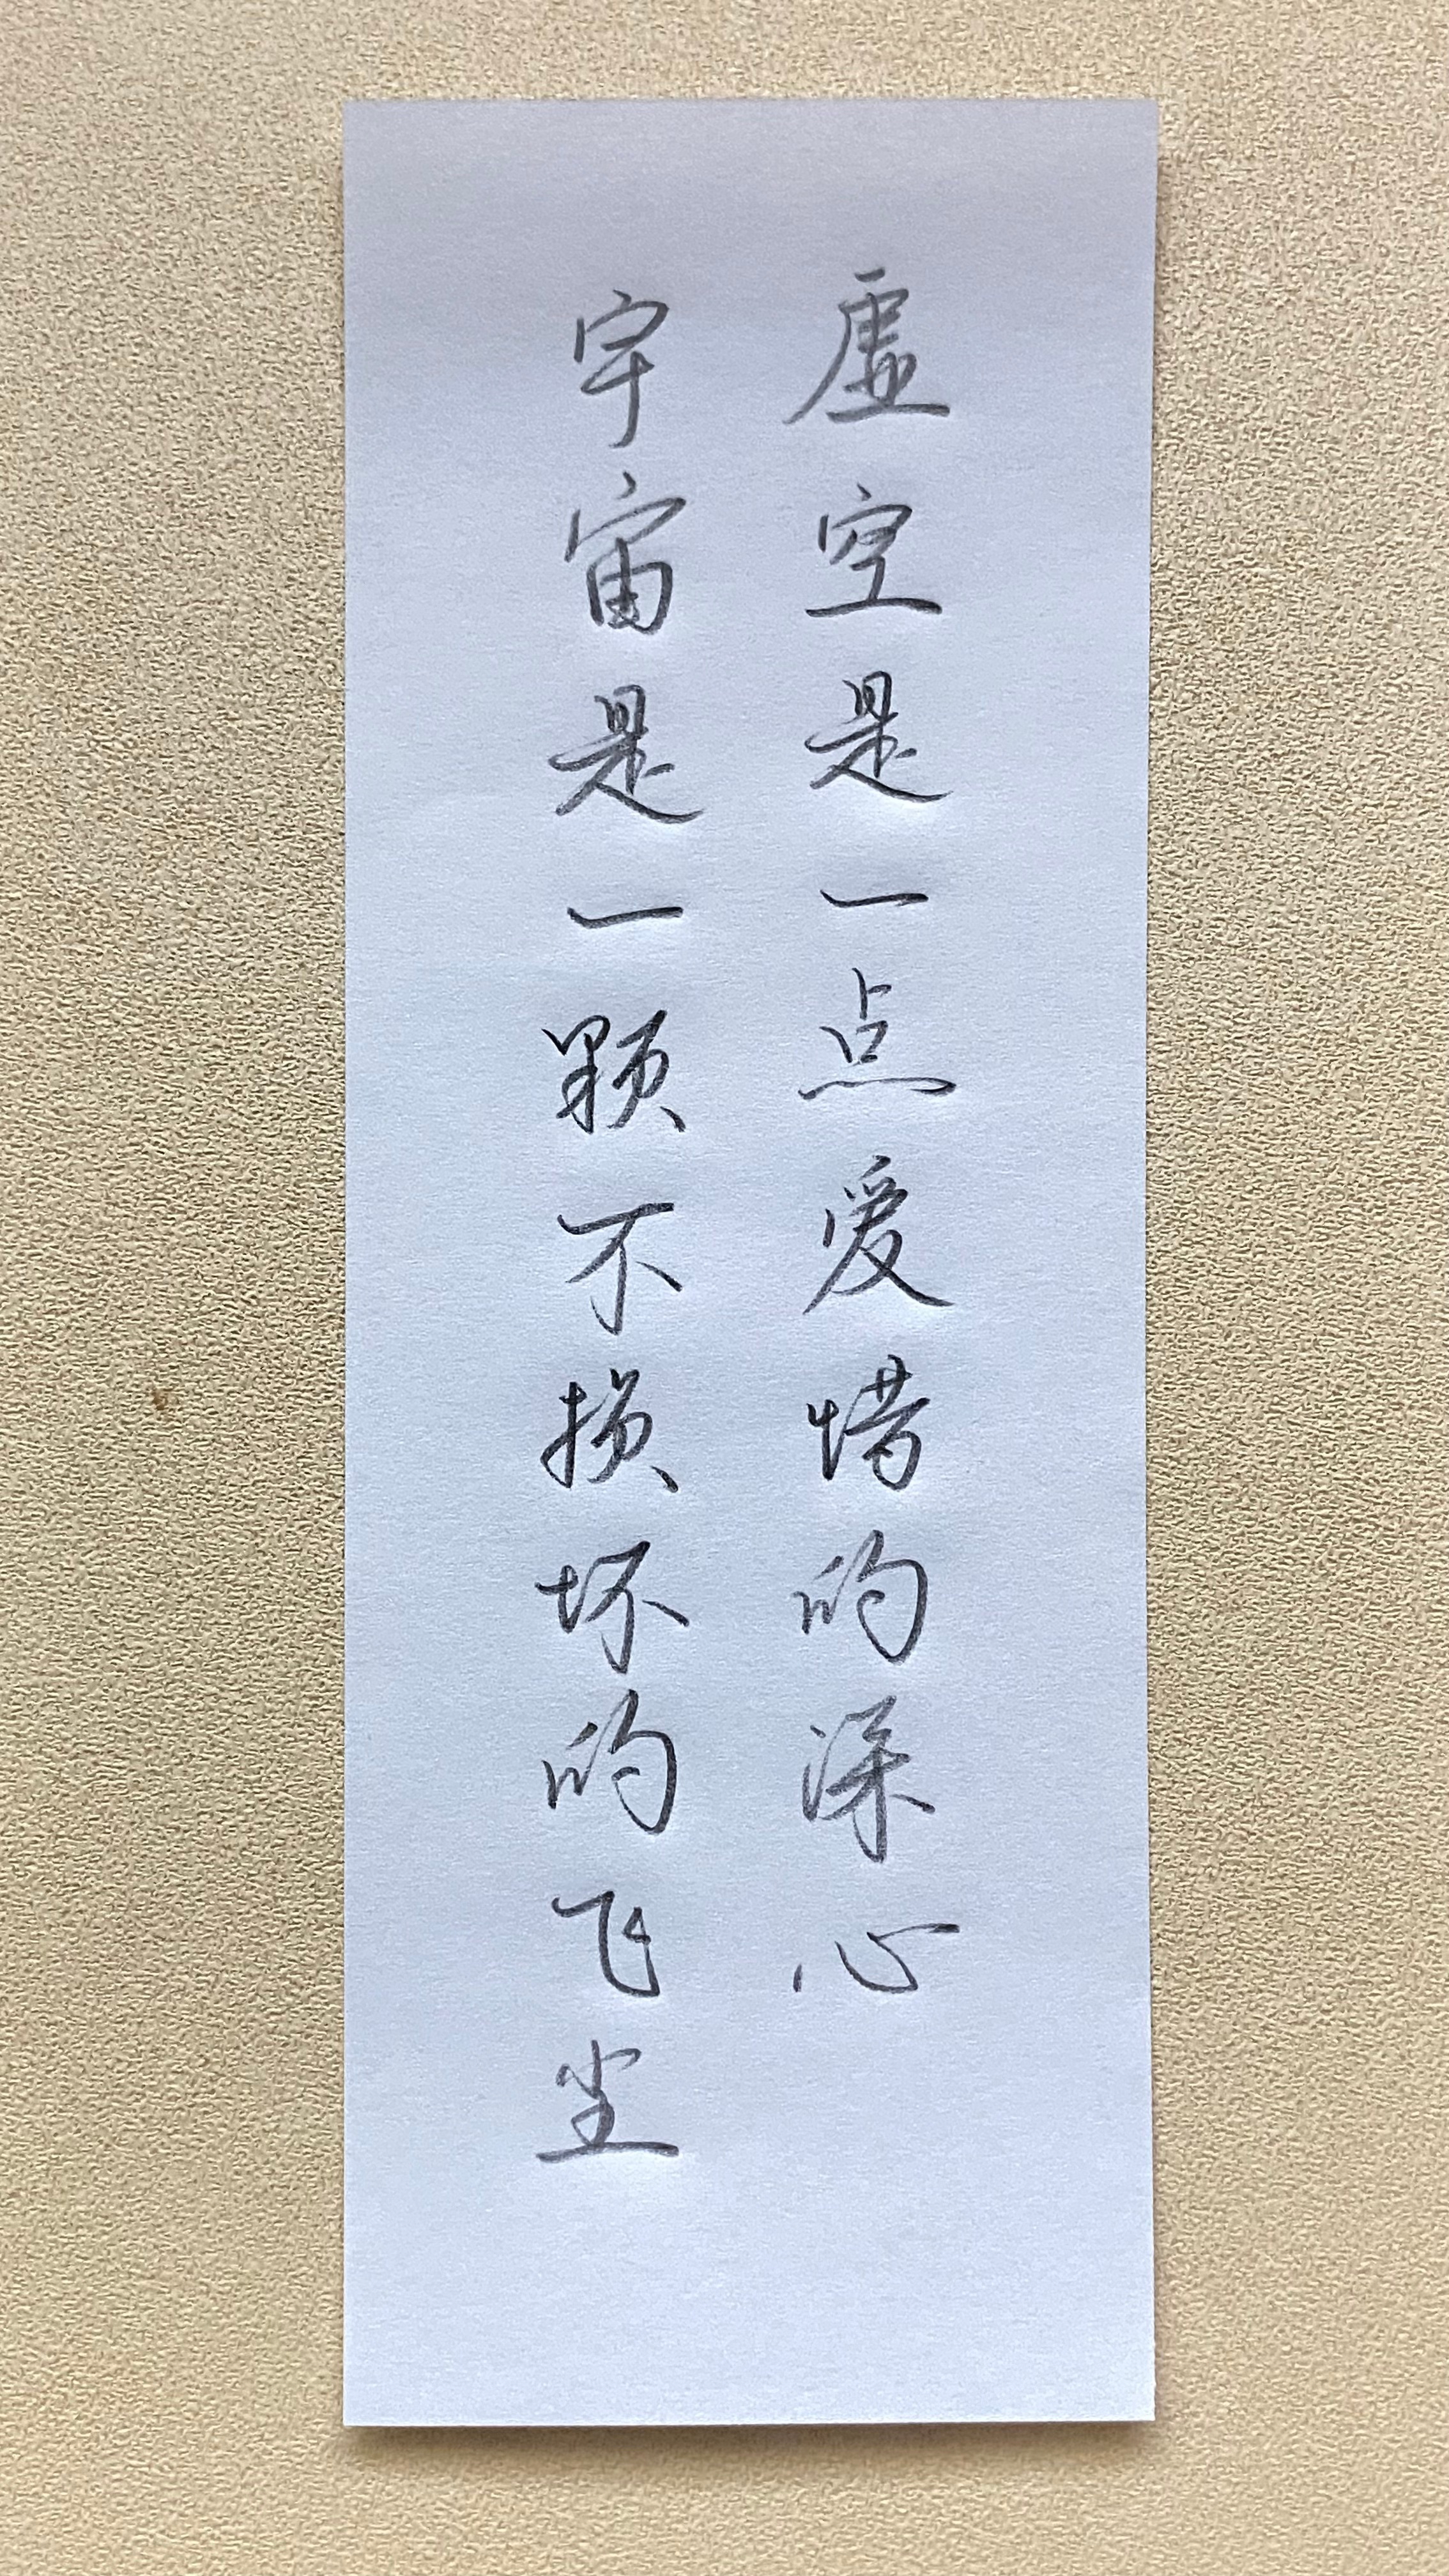 虚空是一点爱惜的深心
宇宙是一颗不损坏的飞尘